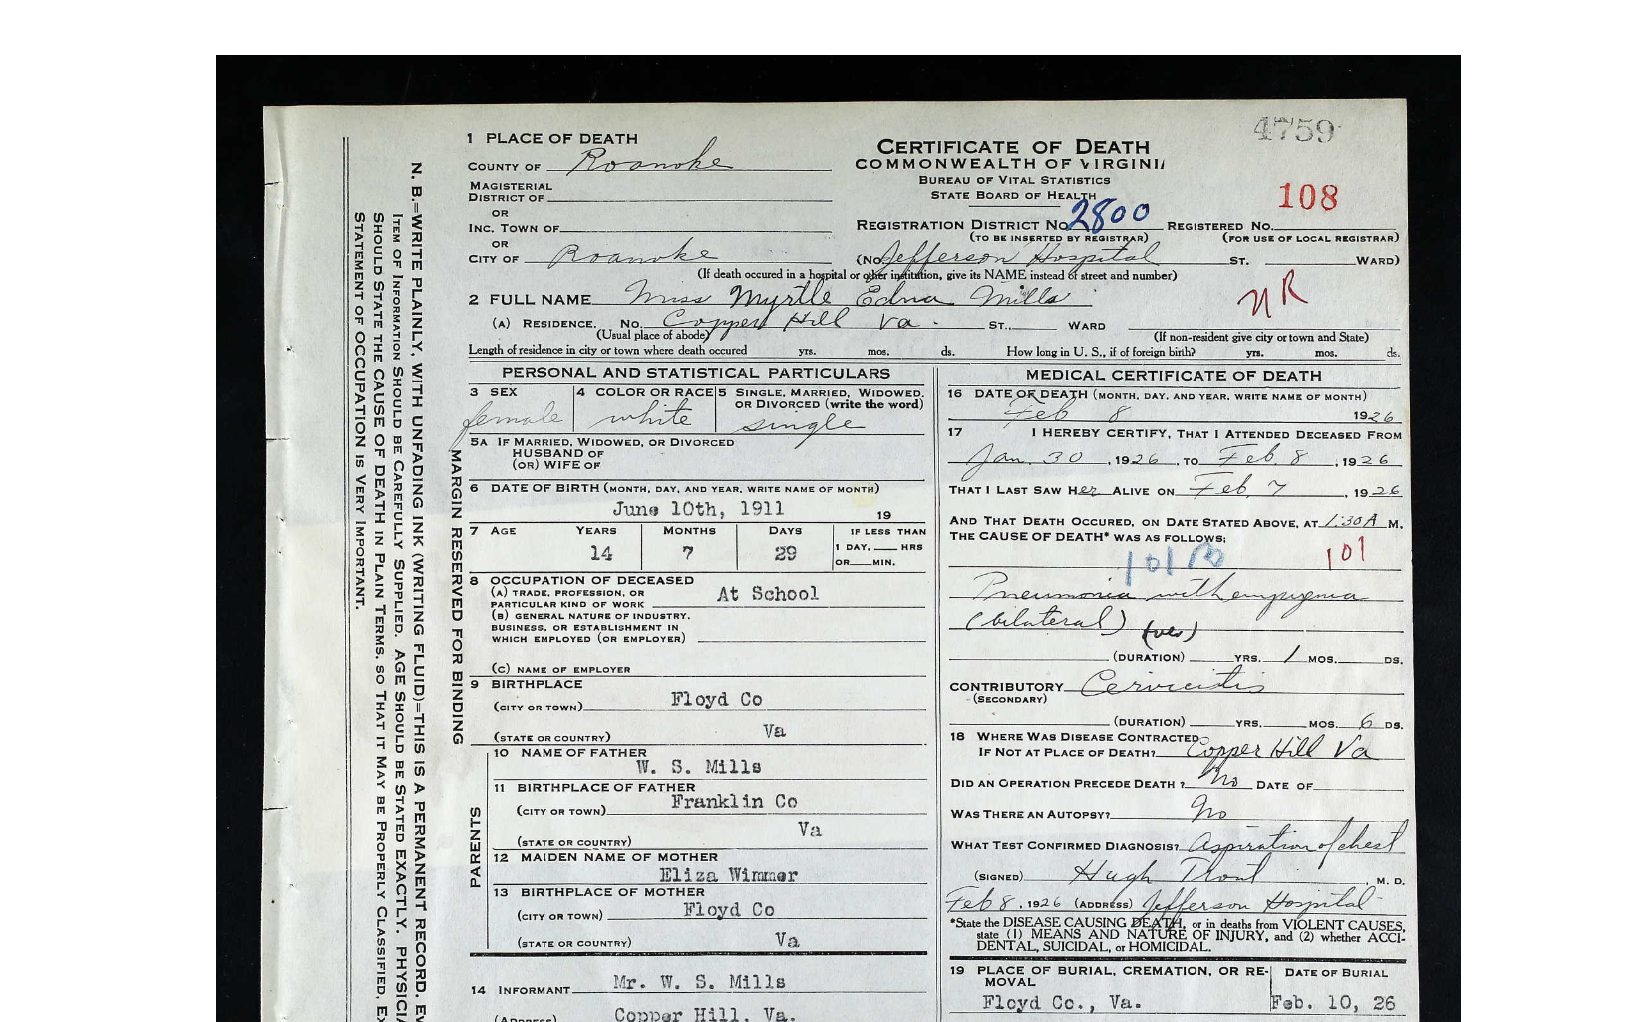 4759
1 PLACE OF DEATH
CERTIFICATE OF DEATH
COUNTY OF Roanoke
COMMONWEALTH OF VIRGINI
MAGISTERIAL
DISTRICT OF
BUREAU OF VITAL STATISTICS
STATE BOARD OF HEALTH
108
OR
INC. TOWN OF
REGISTRATION DISTRICT No 2800 REGISTERED No.
(TO BE INSERTED BY REGISTRAR) (FOR USE OF LOCAL REGISTRAR)
OR
CITY OF Roanoke (No Jefferson Hospital ST. WARD)
(If death occured in a hospital or other institution, give its NAME instead of street and number)
2 FULL NAME Miss Myrtle Edna Mills
NR
(A) RESIDENCE. No. Copper Hill Va. ST. WARD
(Usual place of abode) (If non-resident give city or town and State)
Length of residence in city or town where death occured yrs. mos. ds. How long in U. S., if of foreign birth? yrs. mos. ds.
PERSONAL AND STATISTICAL PARTICULARS
3 SEX
female
4 COLOR OR RACE
white
5 SINGLE, MARRIED, WIDOWED,
OR DIVORCED (write the word)
single
5A IF MARRIED, WIDOWED, OR DIVORCED
HUSBAND OF
(OR) WIFE OF
6 DATE OF BIRTH (MONTH, DAY, AND YEAR, WRITE NAME OF MONTH)
June 10th, 1911 19
7 AGE YEARS MONTHS DAYS IF LESS THAN
14 7 29 1 DAY, HRS
OR MIN.
8 OCCUPATION OF DECEASED
(A) TRADE, PROFESSION, OR
PARTICULAR KIND OF WORK At School
(B) GENERAL NATURE OF INDUSTRY,
BUSINESS, OR ESTABLISHMENT IN
WHICH EMPLOYED (OR EMPLOYER)
(C) NAME OF EMPLOYER
9 BIRTHPLACE
(CITY OR TOWN) Floyd Co
(STATE OR COUNTRY) Va
PARENTS
10 NAME OF FATHER
W. S. Mills
11 BIRTHPLACE OF FATHER
(CITY OR TOWN) Franklin Co
(STATE OR COUNTRY) Va
12 MAIDEN NAME OF MOTHER
Eliza Wimmer
13 BIRTHPLACE OF MOTHER
(CITY OR TOWN) Floyd Co
(STATE OR COUNTRY) Va
14 INFORMANT Mr. W. S. Mills
(ADDRESS) Copper Hill, Va.
MEDICAL CERTIFICATE OF DEATH
16 DATE OF DEATH (MONTH, DAY, AND YEAR, WRITE NAME OF MONTH)
Feb 8 1926
17 I HEREBY CERTIFY, THAT I ATTENDED DECEASED FROM
Jan. 30, 1926, TO Feb. 8, 1926
THAT I LAST SAW Her ALIVE ON Feb. 7, 1926
AND THAT DEATH OCCURED, ON DATE STATED ABOVE, AT 1:30 A M.
THE CAUSE OF DEATH* WAS AS FOLLOWS:
101
Pneumonia with empyema
(bilateral) (yes)
(DURATION) YRS. 1 MOS. DS.
CONTRIBUTORY
(SECONDARY)
(DURATION) YRS. MOS. 6 DS.
18 WHERE WAS DISEASE CONTRACTED
IF NOT AT PLACE OF DEATH? Copper Hill Va
DID AN OPERATION PRECEDE DEATH? No DATE OF
WAS THERE AN AUTOPSY? No
WHAT TEST CONFIRMED DIAGNOSIS? Aspiration of chest
(SIGNED) Hugh Trout, M. D.
Feb 8, 1926 (ADDRESS) Jefferson Hospital
*State the DISEASE CAUSING DEATH, or in deaths from VIOLENT CAUSES,
state (1) MEANS AND NATURE OF INJURY, and (2) whether ACCI-
DENTAL, SUICIDAL, or HOMICIDAL.
19 PLACE OF BURIAL, CREMATION, OR RE-
MOVAL
Floyd Co., Va.
DATE OF BURIAL
Feb. 10, 26
MARGIN RESERVED FOR BINDING
N. B.=WRITE PLAINLY, WITH UNFADING INK (WRITING FLUID)=THIS IS A PERMANENT RECORD. EV
ITEM OF INFORMATION SHOULD BE CAREFULLY SUPPLIED. AGE SHOULD BE STATED EXACTLY. PHYSICIA
SHOULD STATE THE CAUSE OF DEATH IN PLAIN TERMS, SO THAT IT MAY BE PROPERLY CLASSIFIED. EX
STATEMENT OF OCCUPATION IS VERY IMPORTANT.